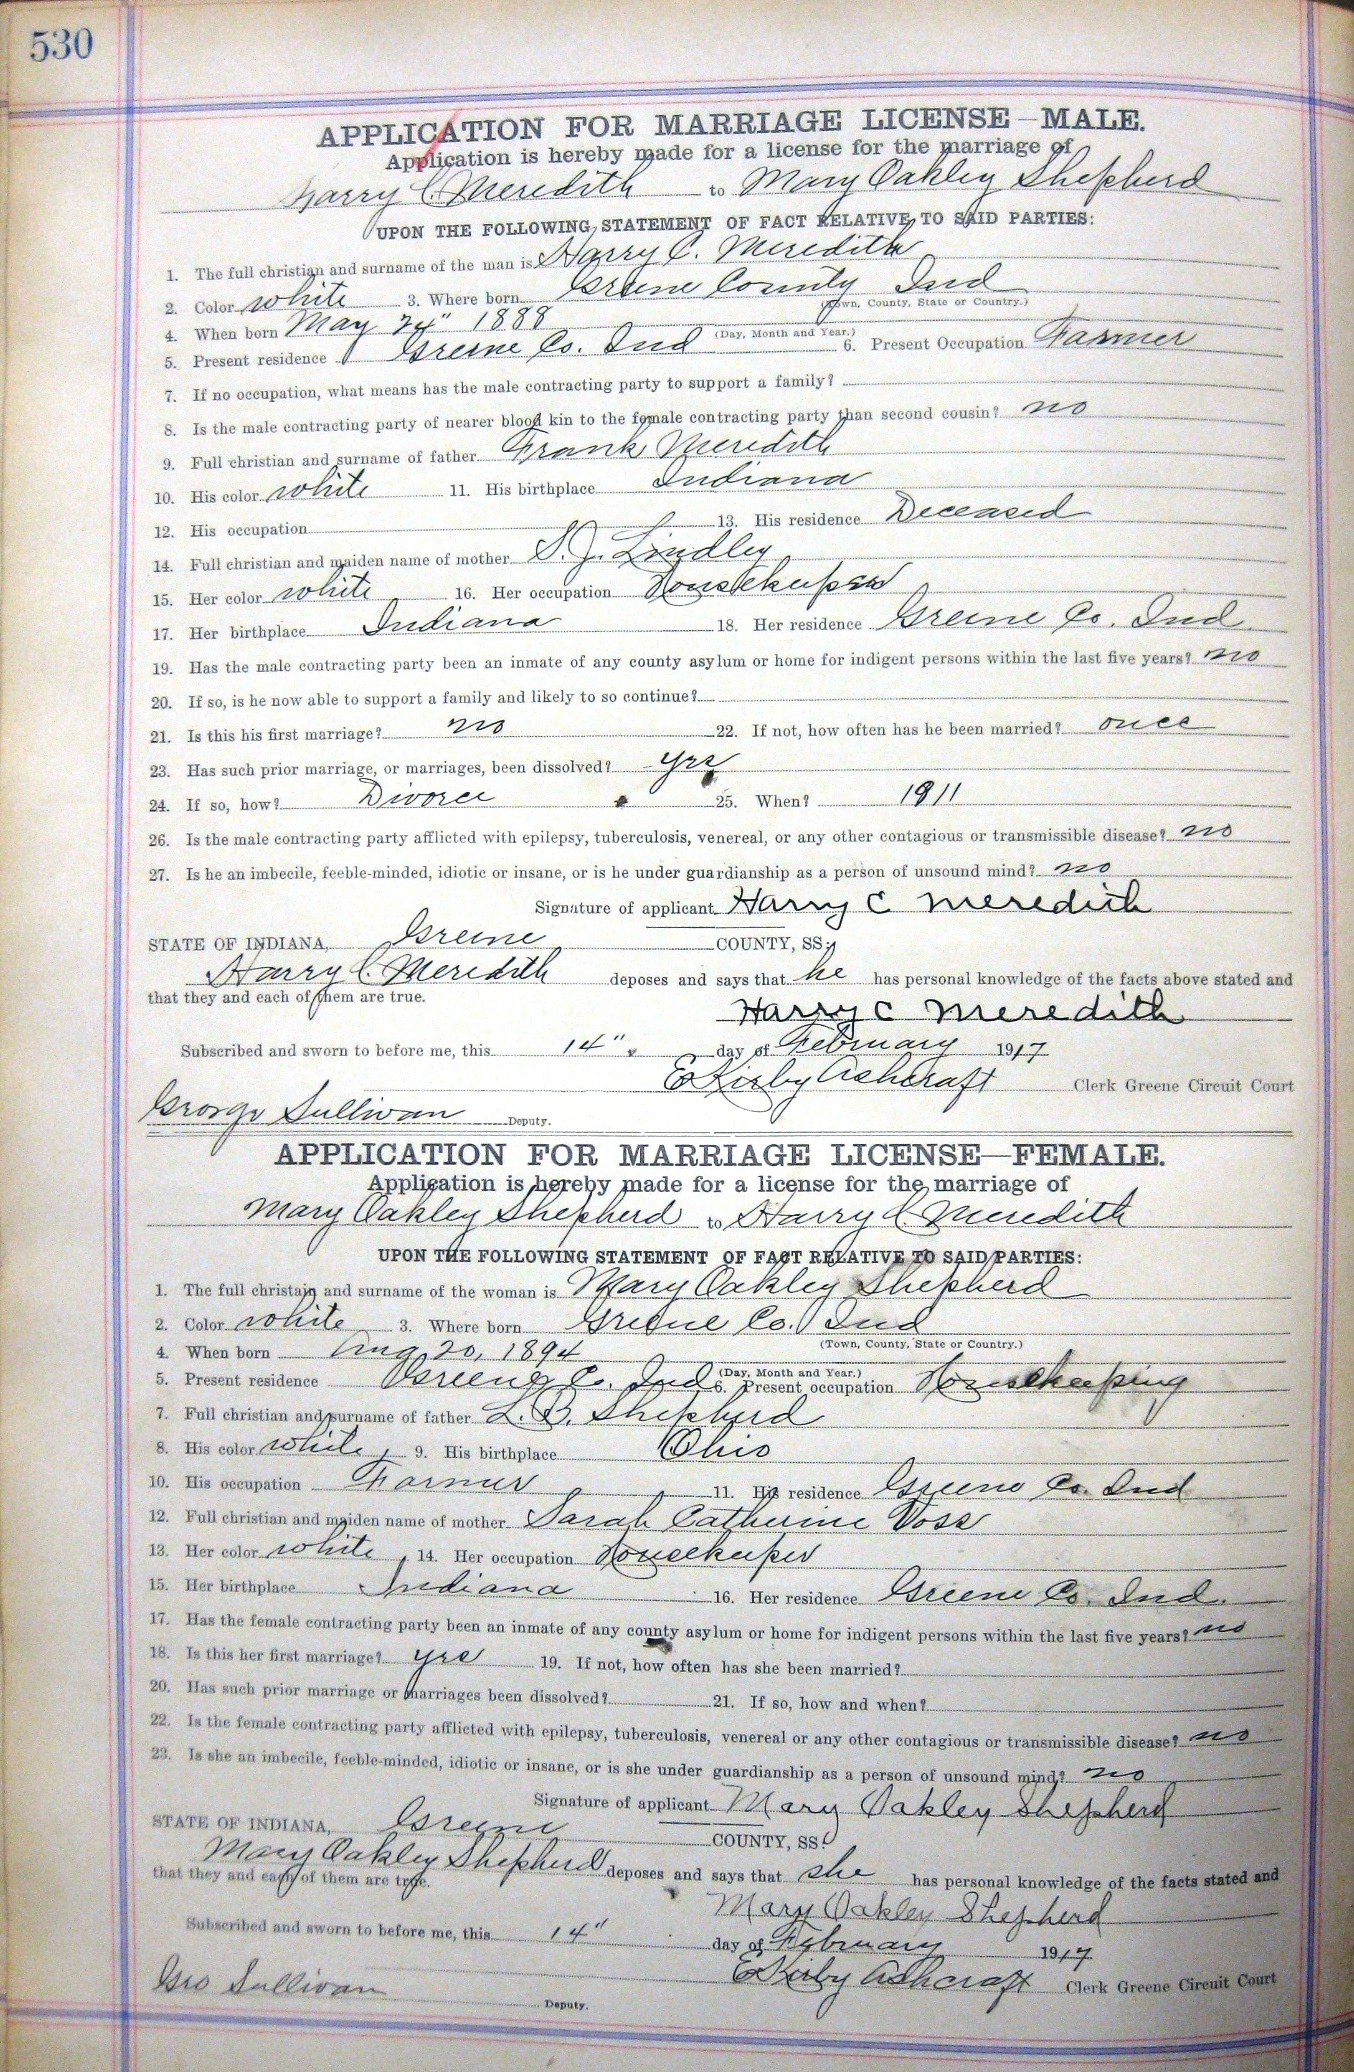 530
APPLICATION FOR MARRIAGE LICENSE—MALE.
Application is hereby made for a license for the marriage of
Harry C. Meredith to Mary Oakley Shepherd
UPON THE FOLLOWING STATEMENT OF FACT RELATIVE TO SAID PARTIES:
1. The full christian and surname of the man is Harry C. Meredith
2. Color white 3. Where born Greene County Ind
(Town, County, State or Country.)
4. When born May 24" 1888
(Day, Month and Year.)
5. Present residence Greene Co. Ind 6. Present Occupation Farmer
7. If no occupation, what means has the male contracting party to support a family?
8. Is the male contracting party of nearer blood kin to the female contracting party than second cousin? no
9. Full christian and surname of father Frank Meredith
10. His color white 11. His birthplace Indiana
12. His occupation 13. His residence Deceased
14. Full christian and maiden name of mother S. J. Lindley
15. Her color white 16. Her occupation Housekeeper
17. Her birthplace Indiana 18. Her residence Greene Co. Ind.
19. Has the male contracting party been an inmate of any county asylum or home for indigent persons within the last five years? no
20. If so, is he now able to support a family and likely to so continue?
21. Is this his first marriage? no 22. If not, how often has he been married? once
23. Has such prior marriage, or marriages, been dissolved? yes
24. If so, how? Divorce 25. When? 1911
26. Is the male contracting party afflicted with epilepsy, tuberculosis, venereal, or any other contagious or transmissible disease? no
27. Is he an imbecile, feeble-minded, idiotic or insane, or is he under guardianship as a person of unsound mind? no
Signature of applicant Harry C Meredith
STATE OF INDIANA, Greene COUNTY, SS:
Harry C. Meredith deposes and says that he has personal knowledge of the facts above stated and
that they and each of them are true.
Harry C Meredith
Subscribed and sworn to before me, this 14" day of February 1917
E Kirby Ashcraft Clerk Greene Circuit Court
George Sullivan Deputy.
APPLICATION FOR MARRIAGE LICENSE—FEMALE.
Application is hereby made for a license for the marriage of
Mary Oakley Shepherd to Harry C. Meredith
UPON THE FOLLOWING STATEMENT OF FACT RELATIVE TO SAID PARTIES:
1. The full christain and surname of the woman is Mary Oakley Shepherd
2. Color white 3. Where born Greene Co. Ind
(Town, County, State or Country.)
4. When born Aug 20, 1894
(Day, Month and Year.)
5. Present residence Greene Co. Ind 6. Present occupation Housekeeping
7. Full christian and surname of father L. B. Shepherd
8. His color white 9. His birthplace Ohio
10. His occupation Farmer 11. His residence Greene Co. Ind
12. Full christian and maiden name of mother Sarah Catherine Voss
13. Her color white 14. Her occupation Housekeeper
15. Her birthplace Indiana 16. Her residence Greene Co. Ind.
17. Has the female contracting party been an inmate of any county asylum or home for indigent persons within the last five years? no
18. Is this her first marriage? yes 19. If not, how often has she been married?
20. Has such prior marriage or marriages been dissolved? 21. If so, how and when?
22. Is the female contracting party afflicted with epilepsy, tuberculosis, venereal or any other contagious or transmissible disease? no
23. Is she an imbecile, feeble-minded, idiotic or insane, or is she under guardianship as a person of unsound mind? no
Signature of applicant Mary Oakley Shepherd
STATE OF INDIANA, Greene COUNTY, SS:
Mary Oakley Shepherd deposes and says that she has personal knowledge of the facts stated and
that they and each of them are true.
Mary Oakley Shepherd
Subscribed and sworn to before me, this 14" day of February 1917
E Kirby Ashcraft Clerk Greene Circuit Court
Geo Sullivan Deputy.